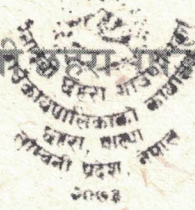 रैनादेवी छहरा गाउँपालिका
कार्यपालिकाको कार्यालय
छहरा, पाल्पा
लुम्बिनी प्रदेश, नेपाल
२०७३